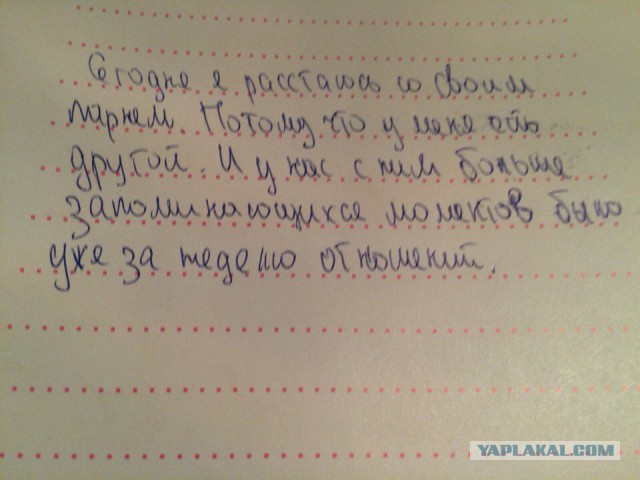 Сегодня я расстаюсь со своим
парнем. Потому что у меня есть
другой. И у нас с ним больше
запоминающихся моментов было
уже за неделю отношений.
YAPLAKAL.COM